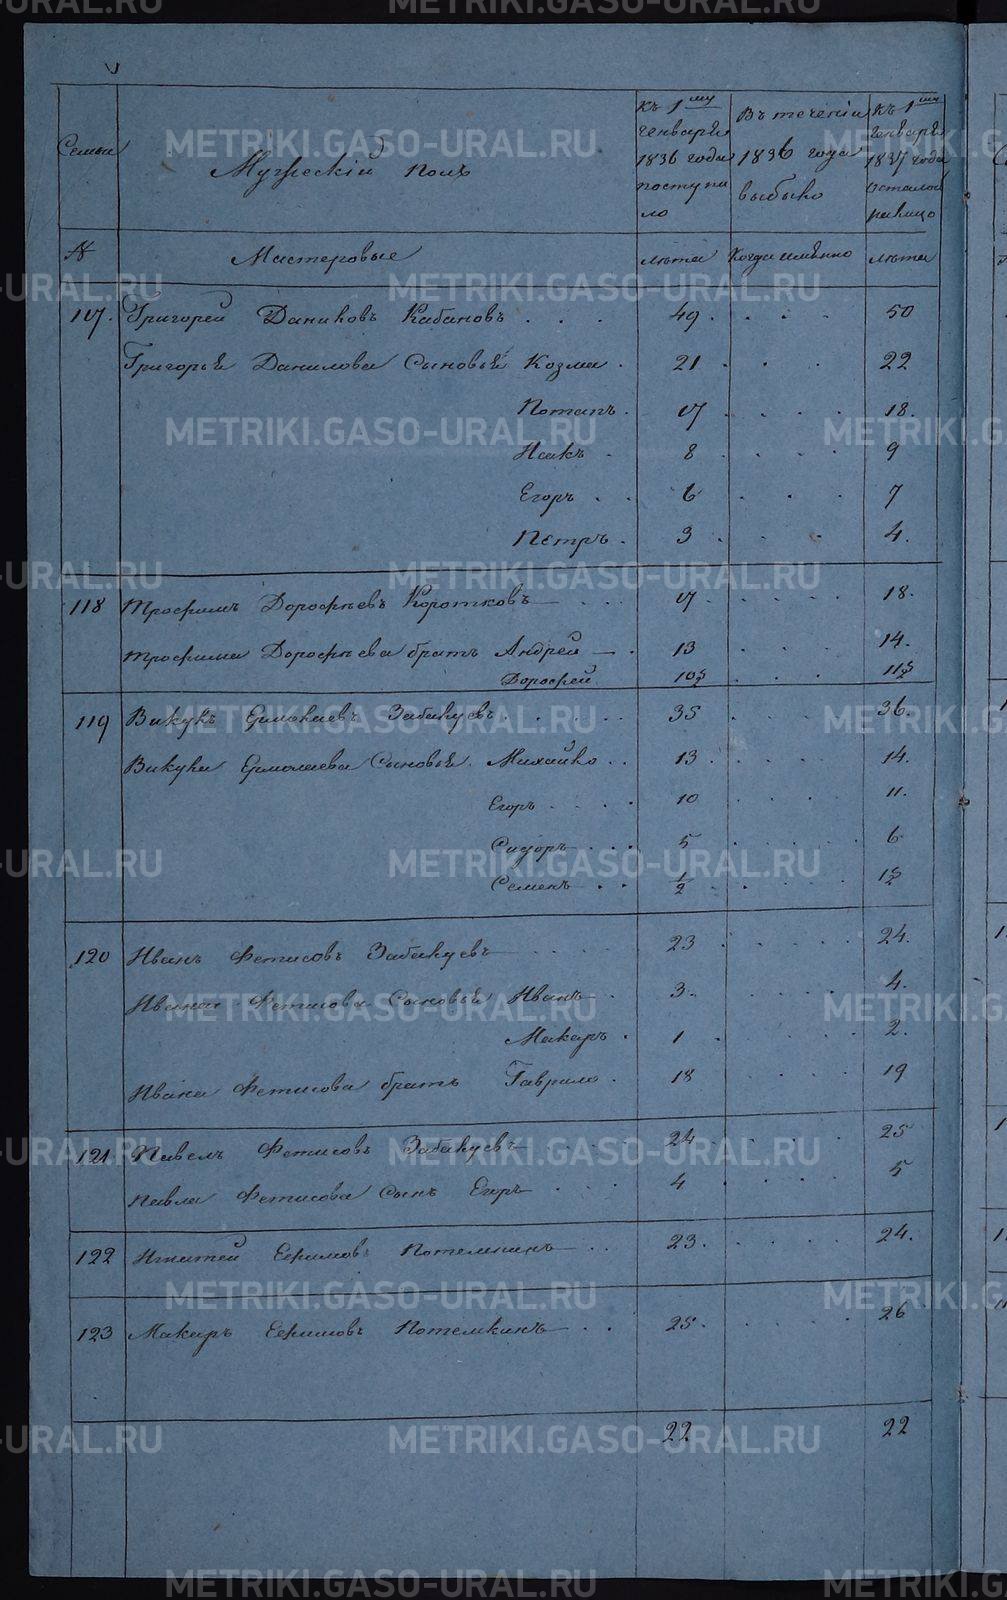 Семьи
Мужескій полъ
Къ 1му
генваря
1836 года
поступи
ло
Въ теченіи
1836 года
выбыло
Къ 1му
генваря
1837 года
осталось
налицо
№ Мастеровые лѣта Когда имѣнно лѣта
117. Григорей Даниловъ Кабановъ . . . 49 . . . 50
Григорья Данилова Сыновья Козма . 21 . . . 22
Потапъ . 17 . . . . 18.
Исакъ . 8 . . . . 9
Егоръ . . 6 . . . 7
Петръ . 3 . . . . 4.
118 Трофимъ Дорофѣевъ Коротковъ . . . 17 . . . . 18.
Трофима Дорофѣева братъ Андрей . 13 . . . . 14.
Дорофей 10½ . . . 11½
119 Викулъ Ермолаевъ Забалуевъ . . . . 35 . . . . 36.
Викула Ермолаева Сыновья. Михайло . . 13 . . . . 14.
Егоръ . . . . 10 . . . . 11.
Сидоръ . . . 5 . . . . 6
Семенъ . . ½ . . . . 1½
120 Иванъ Фетисовъ Забалуевъ . . . . 23 . . . . 24.
Ивана Фетисова Сыновья Иванъ . 3. . . . . 4.
Макаръ . 1 . . . . 2.
Ивана Фетисова братъ Гаврило . 18 . . . . 19
121 Павелъ Фетисовъ Забалуевъ . . . 24 . . . . 25
Павла Фетисова Сынъ Егоръ . . . . 4 . . . . 5
122 Игнатей Ефимовъ Потемкинъ . . 23. . . . . 24.
123 Макаръ Ефимовъ Потемкинъ . . 25. . . . . 26
22 22
METRIKI.GASO-URAL.RU